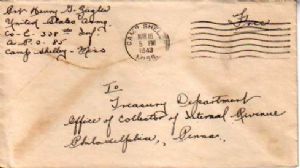 Pvt. Benny G. Zagler
United States Army
Co-E-338th Inf.
A.P.O. 85
Camp Shelby - Miss
CAMP SHELBY
5 PM
1943
MISS.
Free
To
Treasury Department
Office of Collector of Internal Revenue
Philadelphia, Penna.